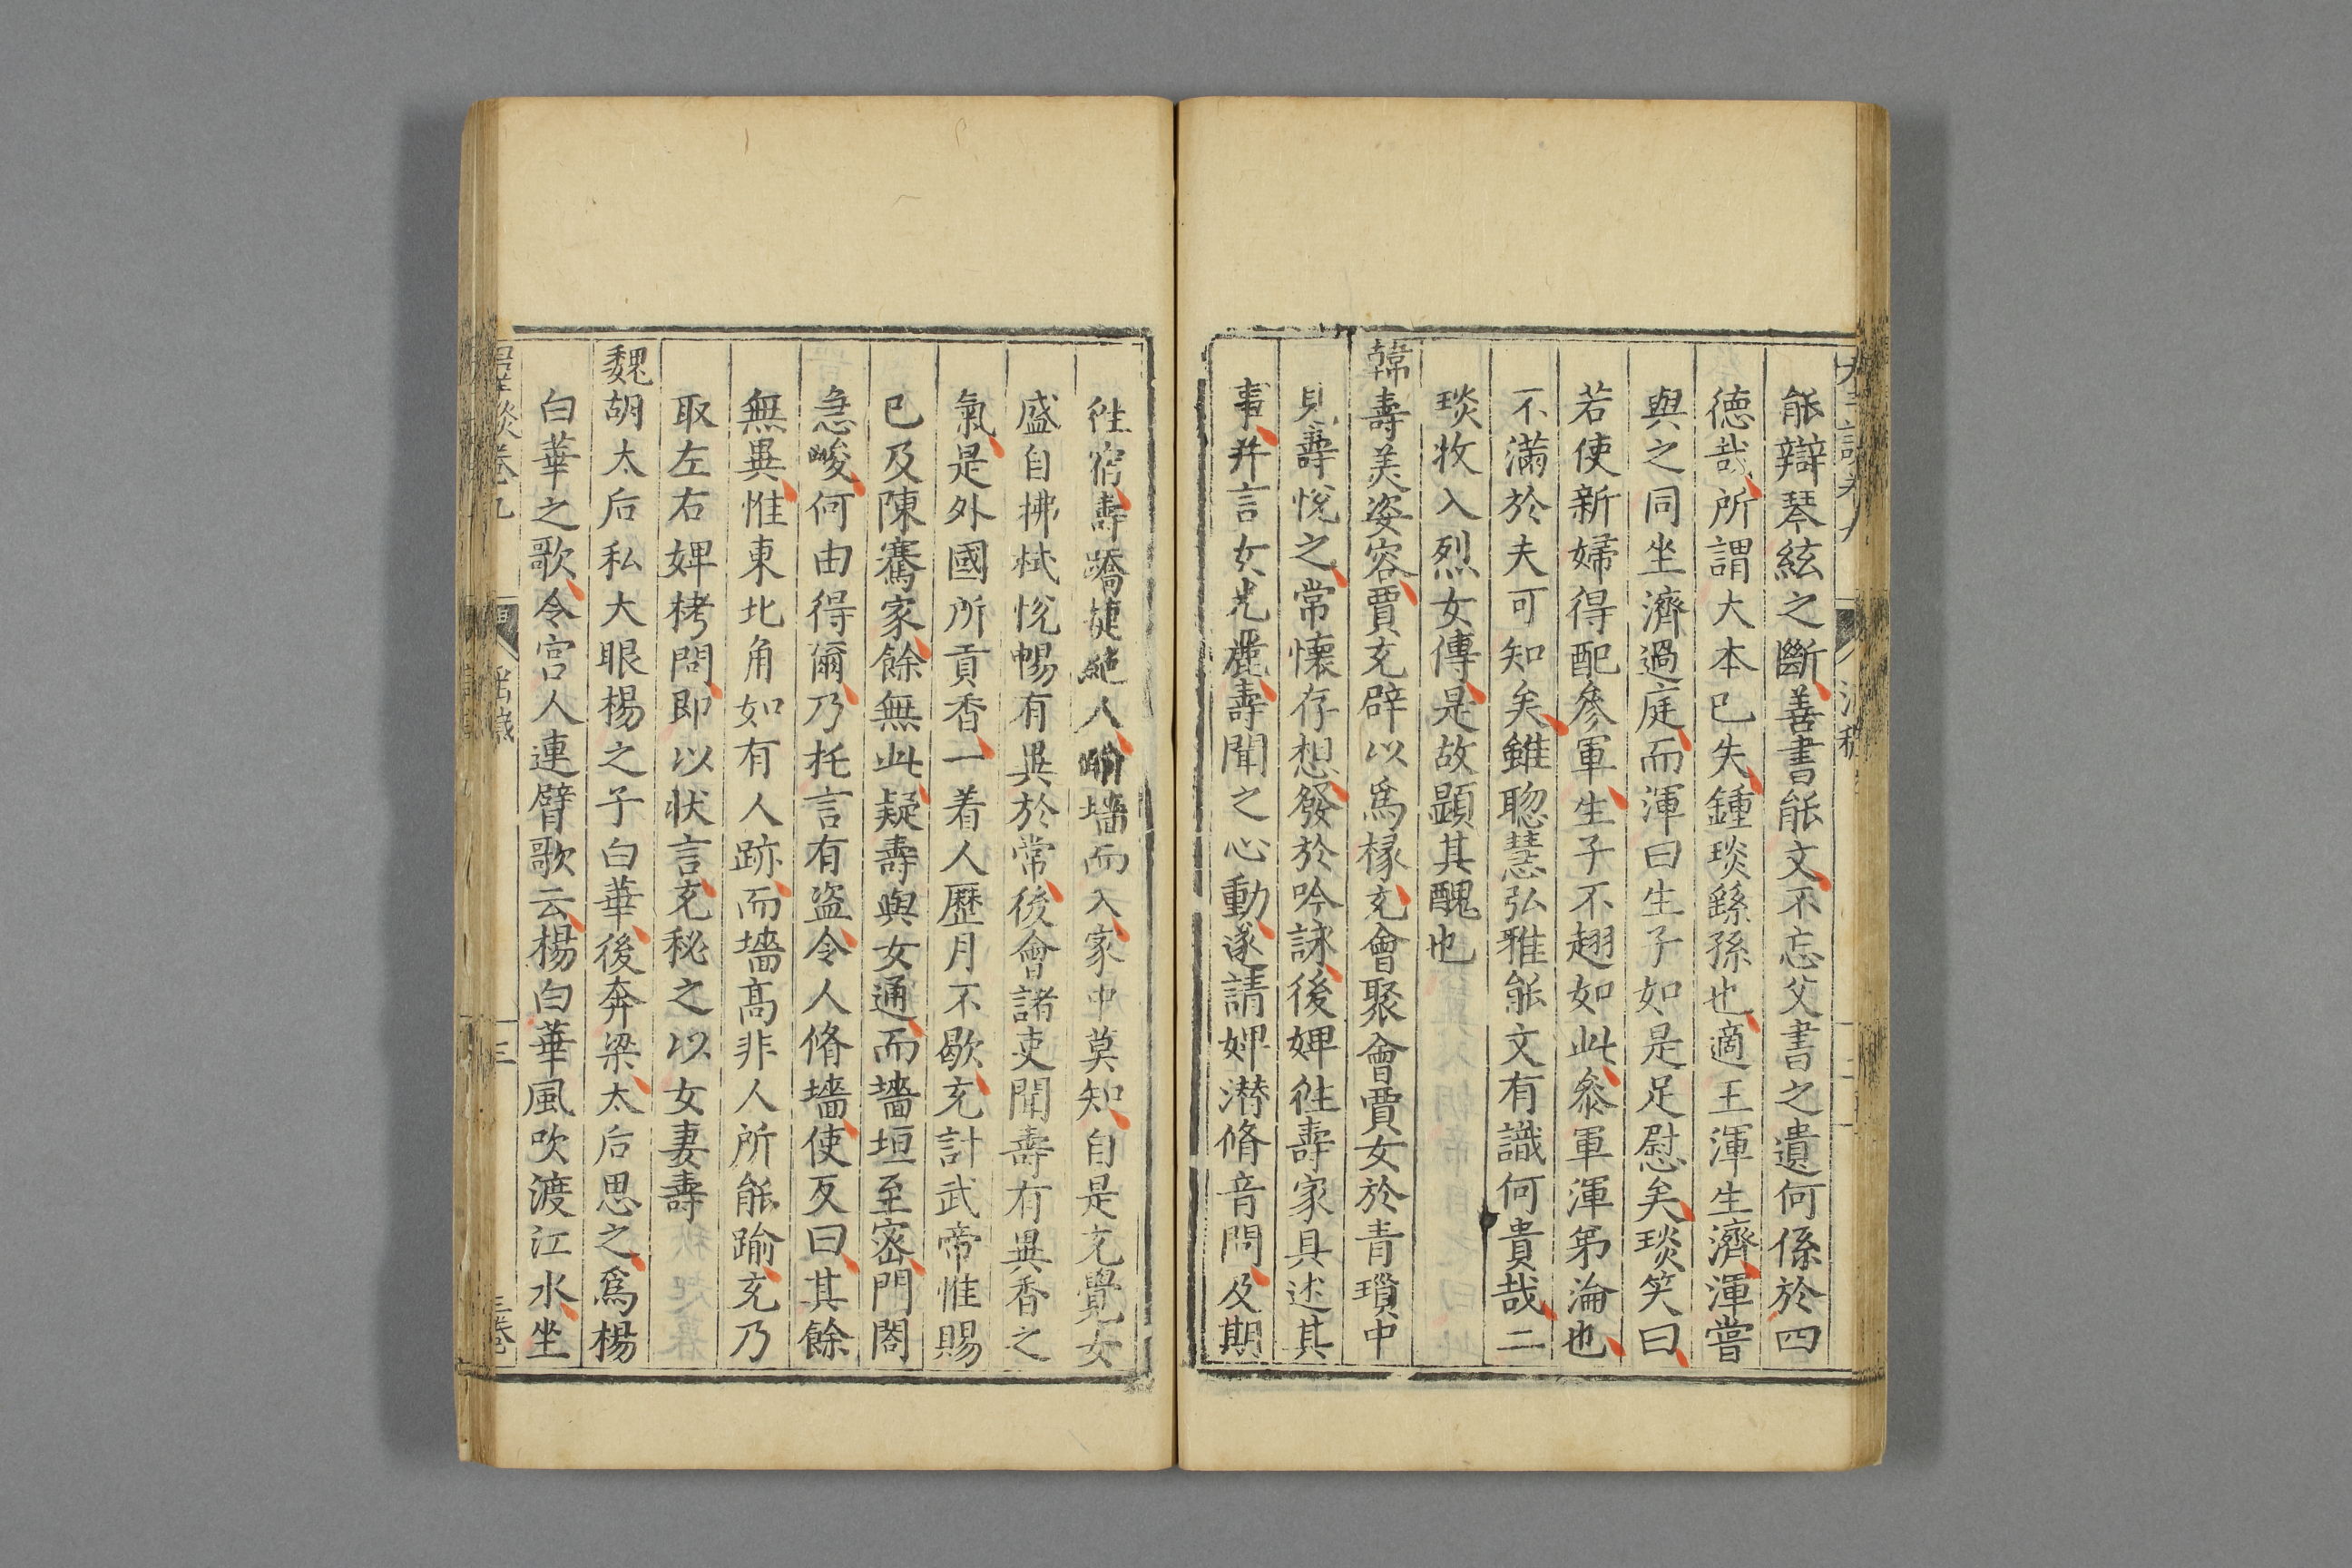 能辯琴絃之斷善書能文不忘父書之遺何係於四
德哉所謂大本已失鍾琰繇孫也適王渾生濟渾嘗
與之同坐濟過庭而渾曰生子如是足慰矣琰笑曰
若使新婦得配參軍生子不翅如此叅軍渾弟淪也
不滿於夫可知矣雖聦慧弘雅能文有識何貴哉二
琰牧入烈女傳是故顕其醜也
韓壽美姿容賈充辟以爲椽充會聚會賈女於青瑣中
見壽悅之常懷存想發於吟詠後婢徃壽家具述其
事并言女光麗壽聞之心動遂請婢潜脩音問及期
徃宿壽蹻捷絶人踰墻而入家中莫知自是充覺女
盛自拂拭悅暢有異於常後會諸吏聞壽有異香之
氣是外國所貢香一着人歷月不歇充計武帝惟賜
已及陳騫家餘無此疑壽與女通而墻垣至密門閤
急峻何由得爾乃托言有盗令人脩墻使反曰其餘
無異惟東北角如有人跡而墻髙非人所能踰充乃
取左右婢栲問即以状言充秘之以女妻壽
魏胡太后私大眼楊之子白華後奔梁太后思之爲楊
白華之歌令宫人連臂歌云楊白華風吹渡江水坐
三